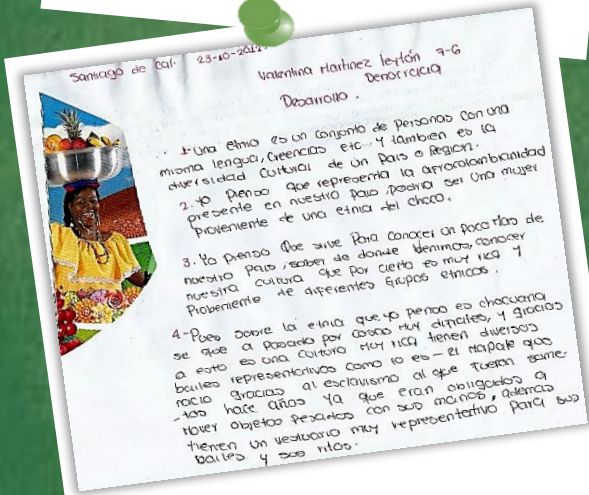 Santiago de Cal. 23-10-2012.
Valentina Martinez 7-6
Democracia
Desarrollo.
1-Una etnia es un conjunto de Personas con una
misma lengua, creencias etc. y tambien es la
diversidad cultural de un Pais o Region.
2. Yo pienso que representa la afrocolombianidad
presente en nuestro pais, podria ser una mujer
proveniente de una etnia del choco.
3. Yo pienso que sirve Para conocer un poco mas de
nuestro pais, saber de donde venimos, conocer
nuestra cultura que por cierto es muy rica y
Probeniente de diferentes Grupos etnicos.
4-Pues sobre la etnia que yo pienso es chocuana
se que a pasado por cosas muy dificiles, y gracias
a esto es una cultura muy rica tienen diversos
bailes representativos como lo es - El mapale que
nacio gracias al esclavismo al que fueron some-
-tidos hace años ya que eran obligados a
mover objetos pesados con sus manos, ademas
tienen un vestuario muy representativo para sus
bailes y sus ritos.